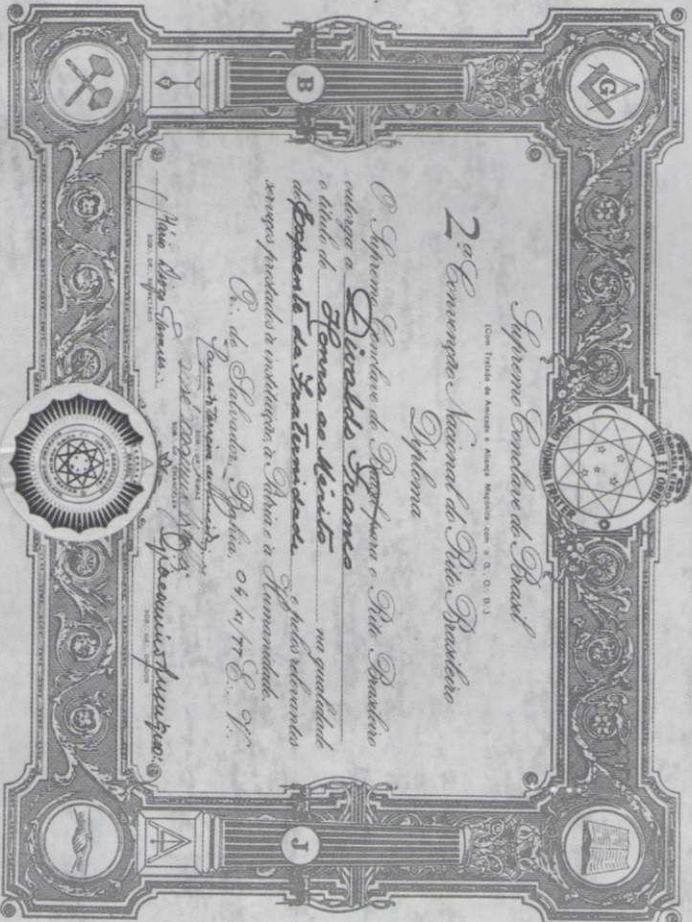 G
B
J
URBI ET ORBI
HOMO HOMINI FRATER
Supremo Conclave do Brasil
(Com Tratado de Amizade e Aliança Maçônica com o G. O. B.)
2ª Convenção Nacional do Rito Brasileiro
Diploma
O Supremo Conclave do Brasil para o Rito Brasileiro
outorga a Divaldo Franco
o título de Honra ao Mérito na qualidade
de Expoente da Fraternidade e pelos relevantes
serviços prestados à instituição, à Pátria e à Humanidade.
Or∴ de Salvador, Bahia, 04/11/77 E∴ V∴